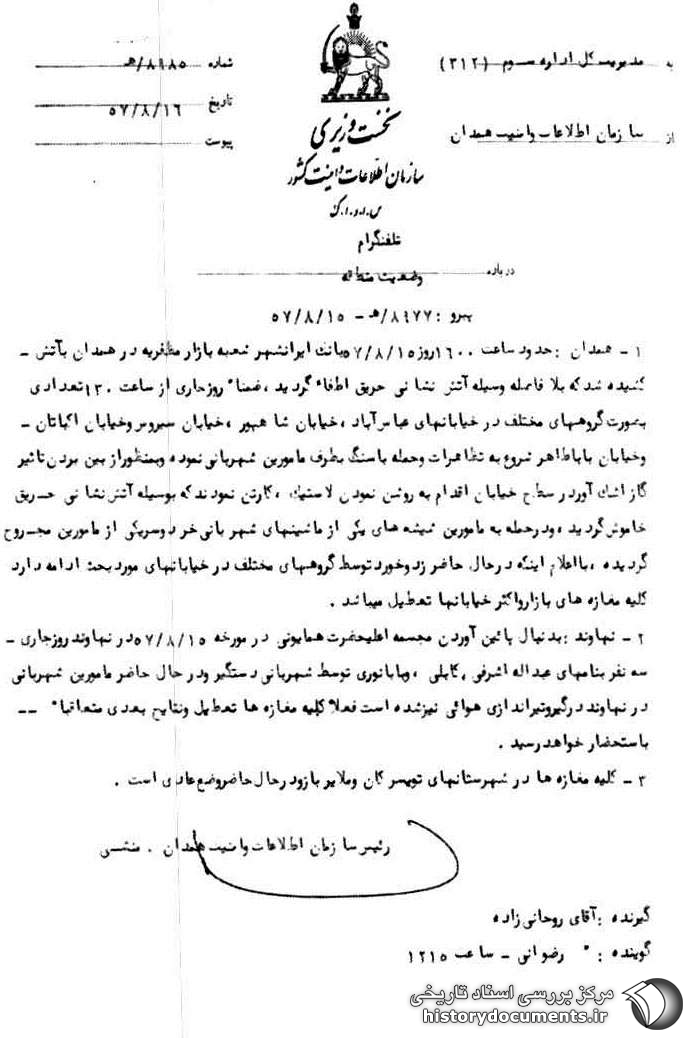 به مدیریت کل اداره سوم (۳۱۲)
از سازمان اطلاعات و امنیت همدان
شماره ۸۹۸۵/هـ
تاریخ ۵۷/۸/۱۶
پیوست
نخست وزیری
سازمان اطلاعات و امنیت کشور
س.ا.و.ا.ک
تلفنگرام
درباره وضعیت منطقه
پیرو : ۸۹۷۷/هـ - ۵۷/۸/۱۵
۱ - همدان : حدود ساعت ۱۶۰۰ روز ۵۷/۸/۱۵ بانک ایرانشهر شعبه بازار مظفریه در همدان بآتش -
کشیده شد که بلا فاصله وسیله آتش نشانی حریق اطفاء گردید ، ضمنا" روزجاری از ساعت ۱۳۰۰ تعدادی
بصورت گروههای مختلف در خیابانهای عباس آباد ، خیابان شاهپور ، خیابان سیروس وخیابان اکباتان -
وخیابان باباطاهر شروع به تظاهرات وحمله باسنگ بطرف مامورین شهربانی نموده وبمنظور از بین بردن تاثیر
گاز اشک آور در سطح خیابان اقدام به روشن نمودن لاستیک ، کارتن نمودند که بوسیله آتش نشانی حریق
خاموش گردید ، ودرحمله به مامورین شیشه های یکی از ماشینهای شهربانی خرد وسریکی از مامورین مجروح
گردیده ، بااعلام اینکه درحال حاضر زدوخورد توسط گروههای مختلف در خیابانهای مورد بحث ادامه دارد
کلیه مغازه های بازار واکثر خیابانها تعطیل میباشد .
۲ - نهاوند : بدنبال پائین آوردن مجسمه اعلیحضرت همایونی در مورخه ۵۷/۸/۱۵ در نهاوند روزجاری -
سه نفر بنامهای عبداله اشرفی ، کابلی ، وبابانوری توسط شهربانی دستگیر ودرحال حاضر مامورین شهربانی
در نهاوند درگیر وتیراندازی هوائی نیز شده است فعلا کلیه مغازه ها تعطیل ونتایج بعدی متعاقبا" --
باستحضار خواهد رسید .
۳ - کلیه مغازه ها در شهرستانهای تویسرکان وملایر باز ودرحال حاضر وضع عادی است .
رئیس سازمان اطلاعات و امنیت همدان . منشی
گیرنده : آقای روحانی زاده
گوینده : " رضوانی - ساعت ۱۲۱۵
مرکز بررسی اسناد تاریخی
historydocuments.ir